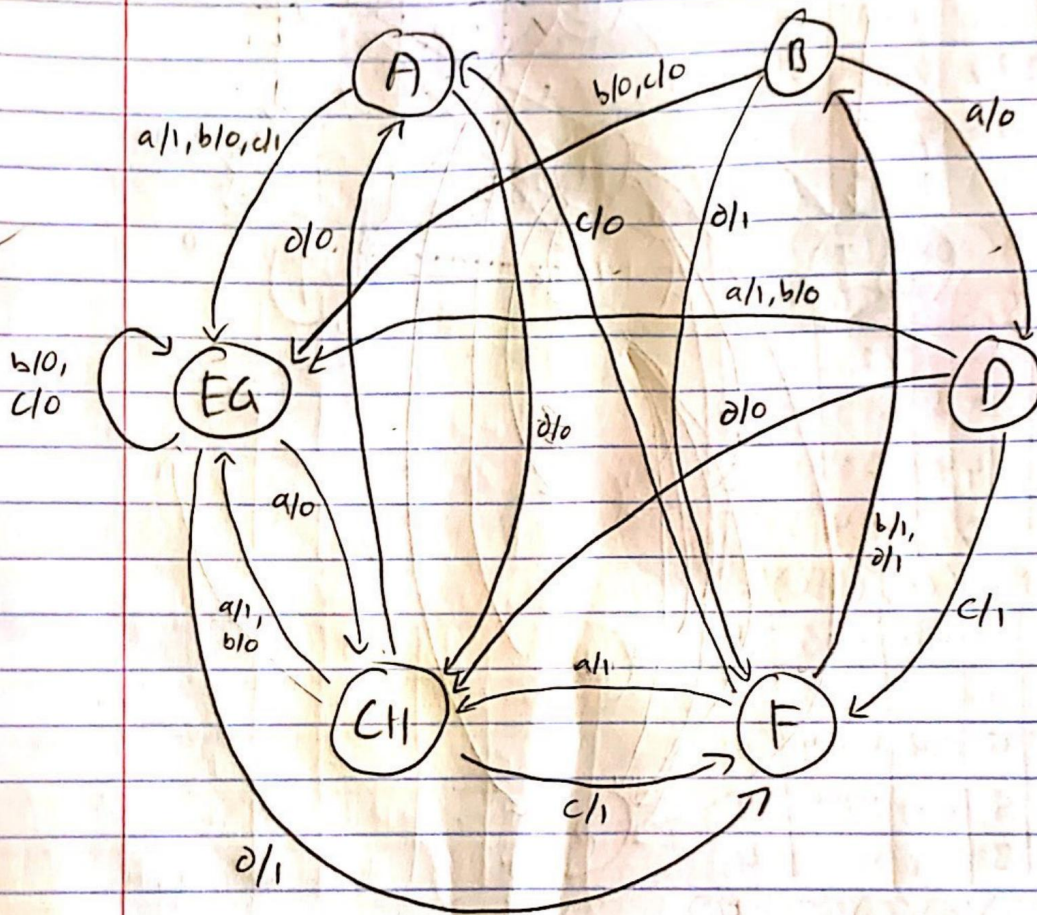 A
B
b/0, c/0
a/0
a/1, b/0, c/1
∂/0
c/0
∂/1
a/1, b/0
b/0,
c/0
EG
D
∂/0
∂/0
a/0
b/1,
∂/1
a/1,
b/0
c/1
a/1
CH
F
c/1
∂/1